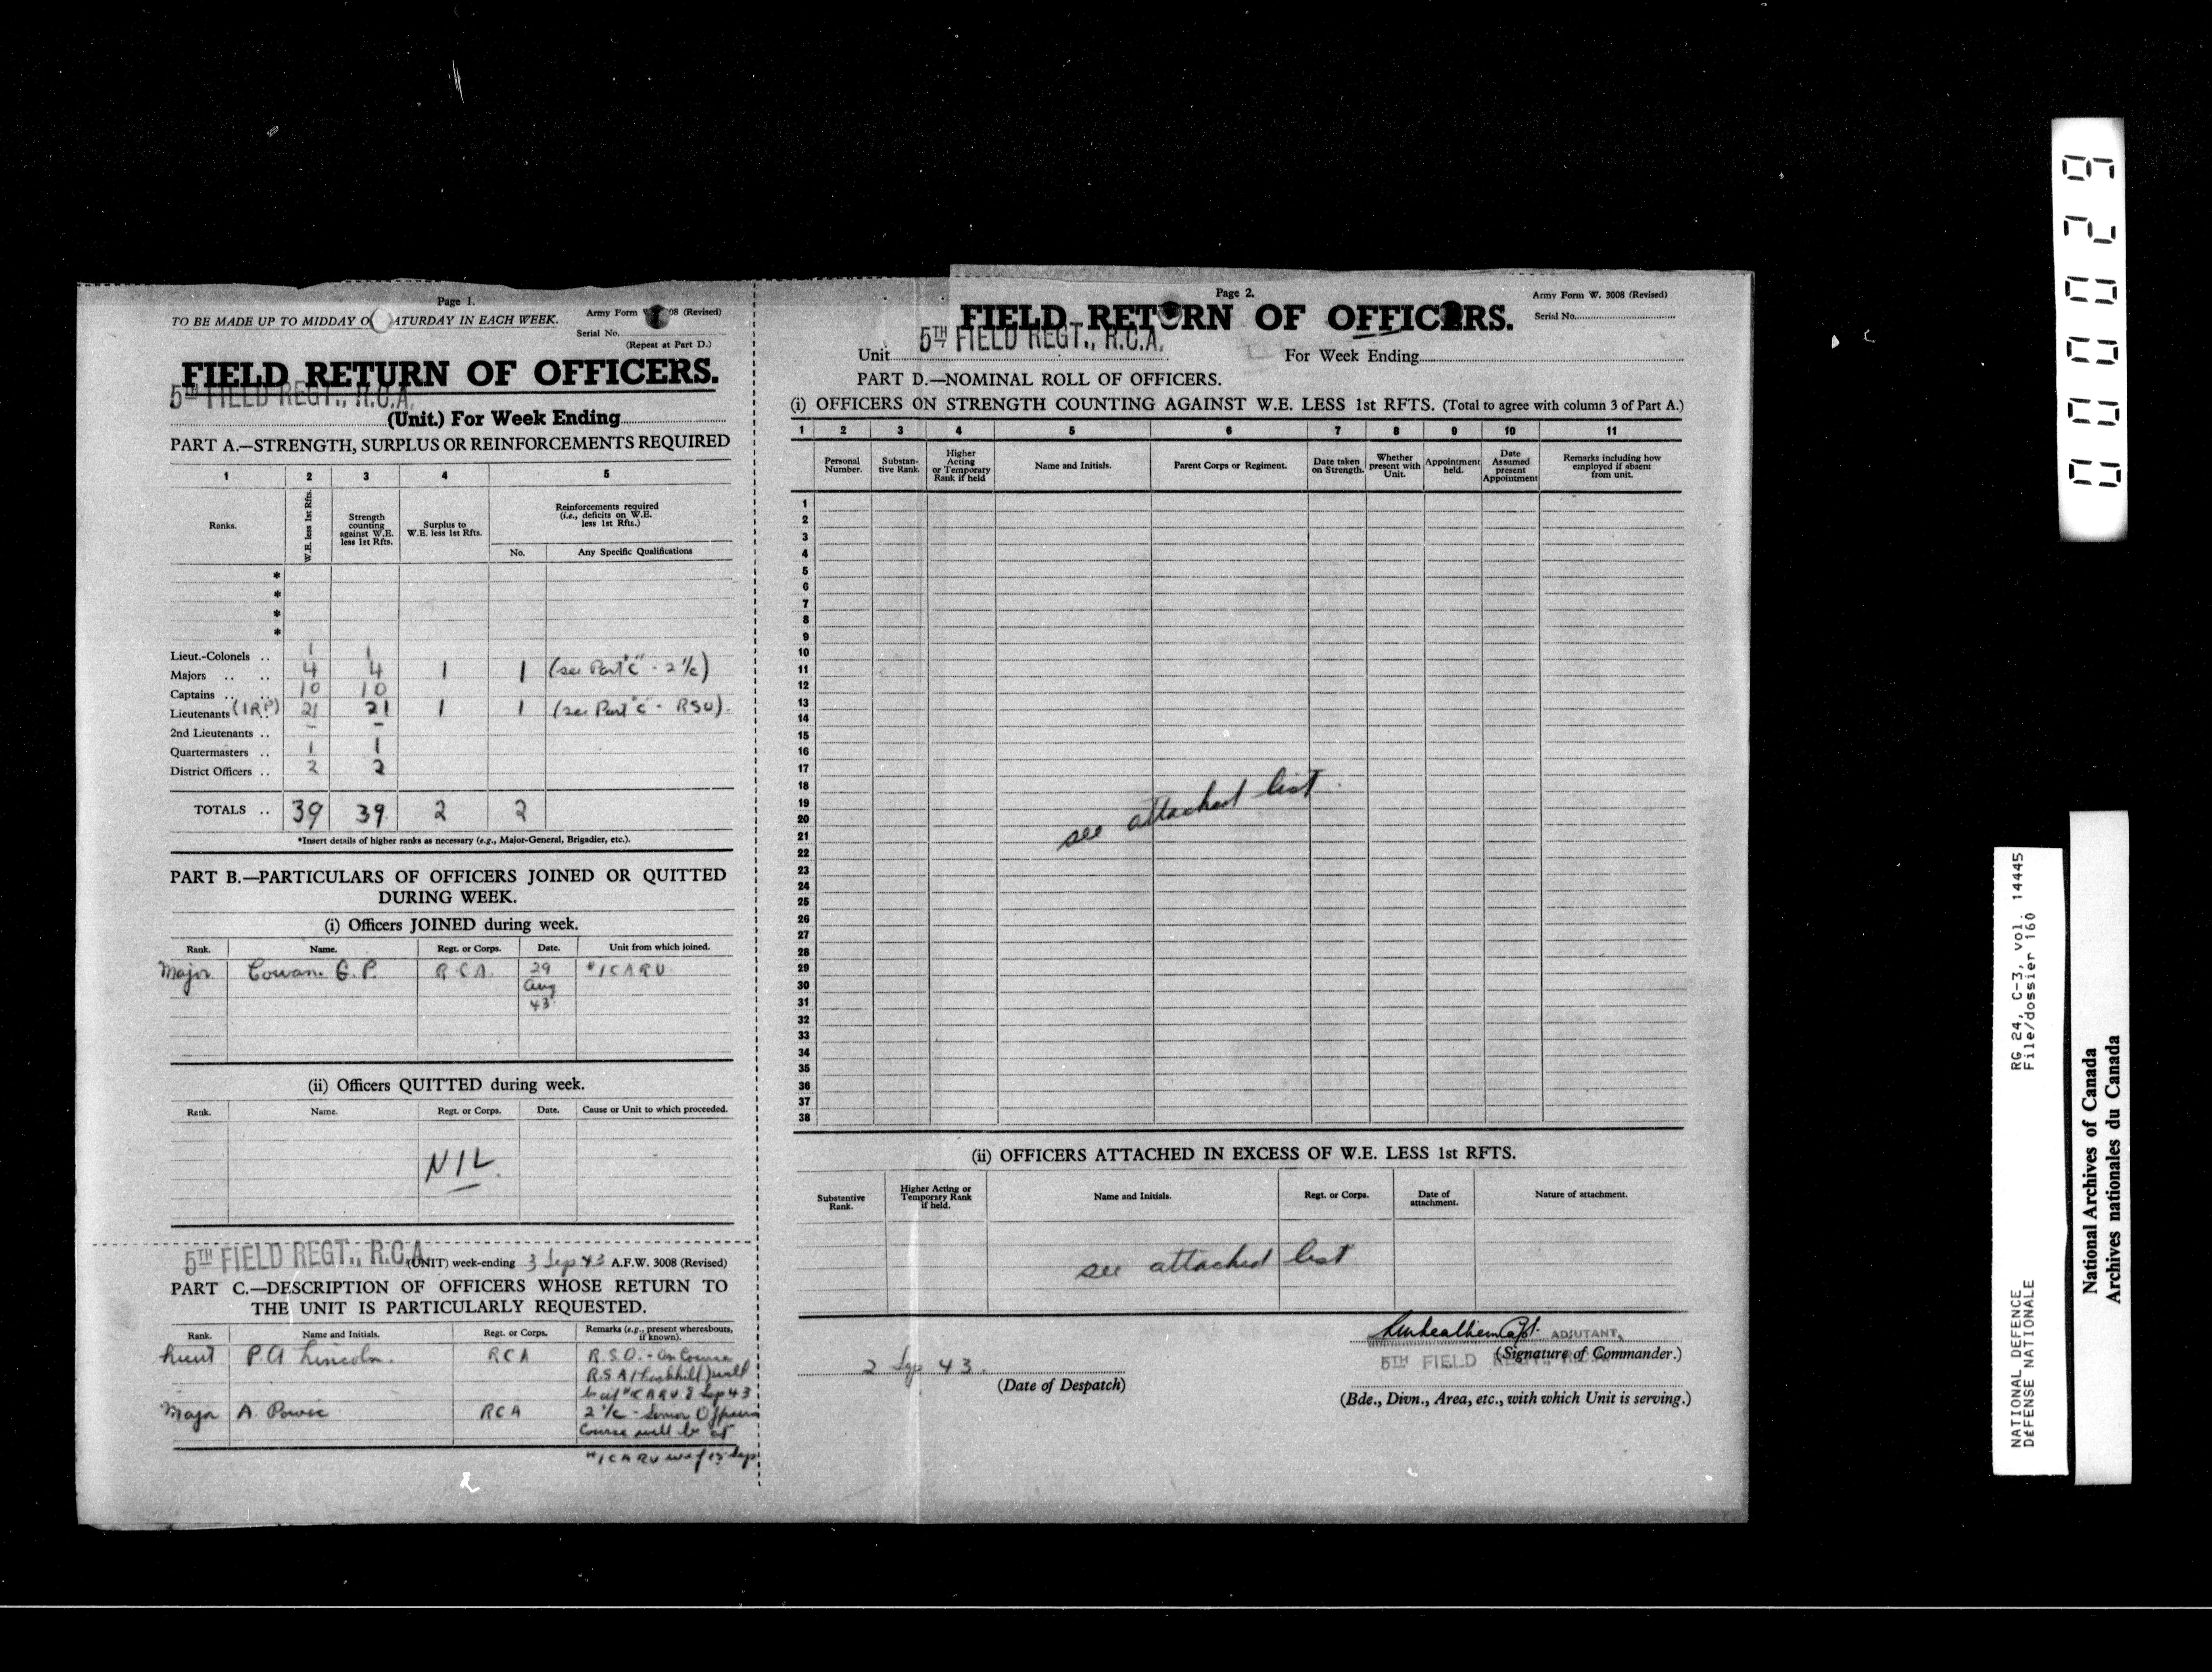 Page 1.
TO BE MADE UP TO MIDDAY O ATURDAY IN EACH WEEK.
Army Form W 08 (Revised)
Serial No.
(Repeat at Part D.)
FIELD RETURN OF OFFICERS.
5TH FIELD REGT., R.C.A.
(Unit.) For Week Ending
PART A.—STRENGTH, SURPLUS OR REINFORCEMENTS REQUIRED
1 2 3 4 5
Ranks.
W.E. less 1st Rfts.
Strength counting against W.E. less 1st Rfts.
Surplus to W.E. less 1st Rfts.
Reinforcements required (i.e., deficits on W.E. less 1st Rfts.)
No. Any Specific Qualifications
*
*
*
*
Lieut.-Colonels .. 1 1
Majors .. .. 4 4 1 1 (see Part "C" - 2 i/c)
Captains .. .. 10 10
Lieutenants (1RP) 21 21 1 1 (see Part "C" - RSO).
2nd Lieutenants .. - -
Quartermasters .. 1 1
District Officers .. 2 2
TOTALS .. 39 39 2 2
*Insert details of higher ranks as necessary (e.g., Major-General, Brigadier, etc.).
PART B.—PARTICULARS OF OFFICERS JOINED OR QUITTED
DURING WEEK.
(i) Officers JOINED during week.
Rank. Name. Regt. or Corps. Date. Unit from which joined.
Major Cowan G.P. RCA. 29 #1 CARU
Aug
43
(ii) Officers QUITTED during week.
Rank. Name. Regt. or Corps. Date. Cause or Unit to which proceeded.
NIL
5TH FIELD REGT., R.C.A. (UNIT) week-ending 3 Sep 43 A.F.W. 3008 (Revised)
PART C.—DESCRIPTION OF OFFICERS WHOSE RETURN TO
THE UNIT IS PARTICULARLY REQUESTED.
Rank. Name and Initials. Regt. or Corps. Remarks (e.g., present whereabouts, if known).
Lieut P.A. Lincoln. RCA R.S.O. - On Course
R.S.A. (Larkhill) will
be at #1 CARU 8 Sep 43
Major A. Power RCA 2 i/c - Senior Officers
Course will be at
#1 CARU wef 15 Sep
Page 2.
Army Form W. 3008 (Revised)
Serial No.
FIELD RETURN OF OFFICERS.
Unit 5TH FIELD REGT., R.C.A. For Week Ending
PART D.—NOMINAL ROLL OF OFFICERS.
(i) OFFICERS ON STRENGTH COUNTING AGAINST W.E. LESS 1st RFTS. (Total to agree with column 3 of Part A.)
1 2 3 4 5 6 7 8 9 10 11
Personal Number.
Substantive Rank.
Higher Acting or Temporary Rank if held
Name and Initials.
Parent Corps or Regiment.
Date taken on Strength.
Whether present with Unit.
Appointment held.
Date Assumed present Appointment
Remarks including how employed if absent from unit.
1
2
3
4
5
6
7
8
9
10
11
12
13
14
15
16
17
18
19
20
see attached list
21
22
23
24
25
26
27
28
29
30
31
32
33
34
35
36
37
38
(ii) OFFICERS ATTACHED IN EXCESS OF W.E. LESS 1st RFTS.
Substantive Rank.
Higher Acting or Temporary Rank if held.
Name and Initials.
Regt. or Corps.
Date of attachment.
Nature of attachment.
see attached list
Capt. ADJUTANT,
5TH FIELD REGT., (Signature of Commander.)
2 Sep 43.
(Date of Despatch)
(Bde., Divn., Area, etc., with which Unit is serving.)
000029
RG 24, C-3, vol. 14445
File/dossier 160
NATIONAL DEFENCE
DÉFENSE NATIONALE
National Archives of Canada
Archives nationales du Canada